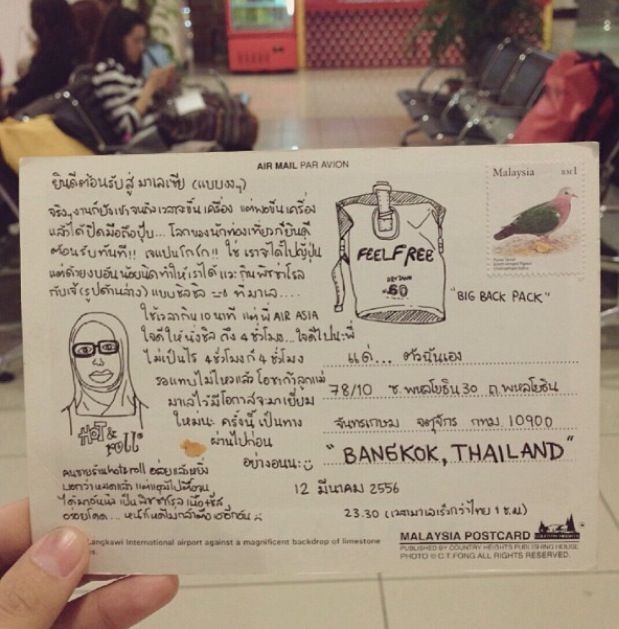 AIR MAIL PAR AVION
Malaysia RM1
ยินดีต้อนรับสู่ มาเลเซีย (แบบงงๆ)
จริงๆงานก็ยังเข้าจนถึงเวลาจะขึ้นเครื่อง แต่พอขึ้นเครื่อง
แล้วได้ปิดมือถือปุ๊บ... โลกของนักท่องเที่ยวก็ยินดี
ต้อนรับทันที!! เจแปนโกโก!! ใช่ เราจะได้ไปญี่ปุ่น
แต่ด้วยงบอันน้อยนิดทำให้เราได้แวะกินพิซซ่าโรล
กับเจ๊(รูปด้านล่าง) แบบชิลชิล ที่ มาเล....
FEELFREE
DRY TANK
60
"BIG BACK PACK"
ใช้เวลากิน 10 นาที แต่พี่ AIR ASIA
ใจดีให้นั่งชิล ถึง 4 ชั่วโมง... ใจดีไปนะพี่
ไม่เป็นไร 4 ชั่วโมงก็ 4 ชั่วโมง
รอแทบไม่ไหวแล้วโอซาก้าลูกแม่
มาเลไว้มีโอกาสจะมาเยี่ยม
ใหม่นะ ครั้งนี้เป็นทาง
ผ่านไปก่อน
อย่างอนนะ
HOT & roll
คนขายร้านhot&roll อร่อยแล้วหยิ่ง
บอกว่าหมดแล้ว แต่
ได้มาอันนึง เป็นพิซซ่าโรล เนื้อ+ชีส
อร่อยโคตร...
แด่... ตัวฉันเอง
78/10 ซ. พหลโยธิน 30 ถ. พหลโยธิน
จันทรเกษม จตุจักร กทม. 10900
"BANGKOK, THAILAND"
12 มีนาคม 2556
23.30 (เวลามาเลเร็วกว่าไทย 1 ช.ม)
Langkawi International airport against a magnificent backdrop of limestone
MALAYSIA POSTCARD
PUBLISHED BY COUNTRY HEIGHTS PUBLISHING HOUSE
PHOTO © C.T.FONG ALL RIGHTS RESERVED.